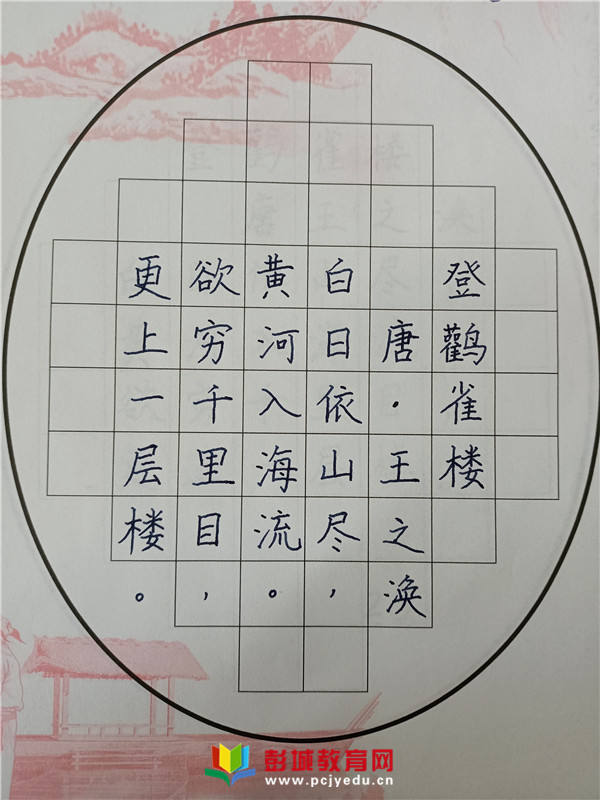 登鹳雀楼
唐·王之涣
白日依山尽，
黄河入海流。
欲穷千里目，
更上一层楼。
彭城教育网
www.pcjyedu.cn